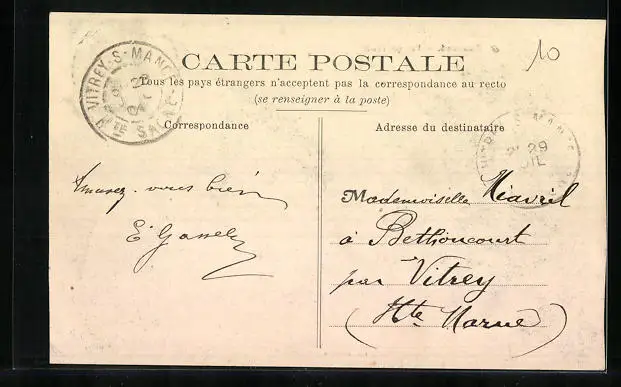 10
CARTE POSTALE
Tous les pays étrangers n'acceptent pas la correspondance au recto
(se renseigner à la poste)
Correspondance
Adresse du destinataire
VITREY-S-MANCE
Hte SAÔNE
Amusez-vous bien
Mademoiselle
à Bethoncourt
par Vitrey
(Hte Marne)
29